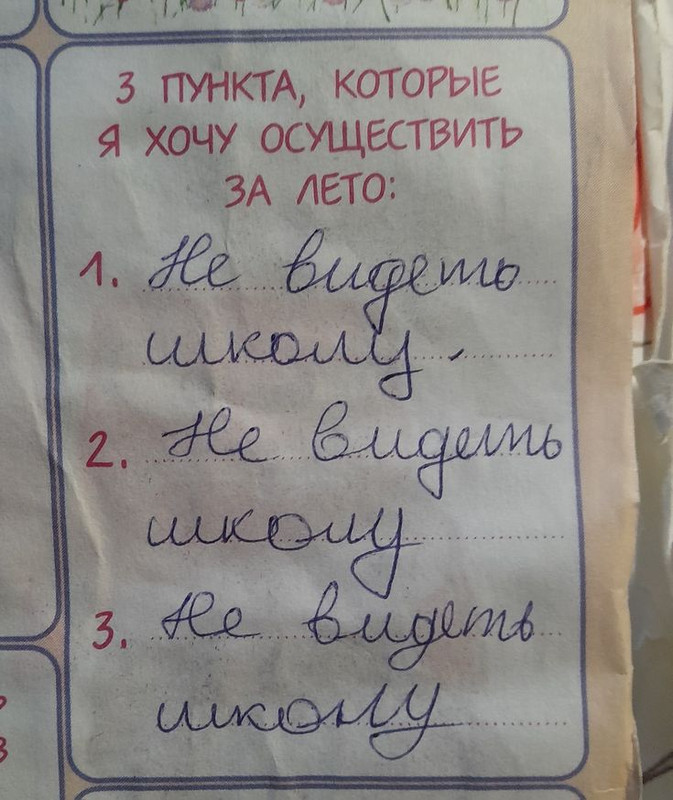 3 ПУНКТА, КОТОРЫЕ
Я ХОЧУ ОСУЩЕСТВИТЬ
ЗА ЛЕТО:
1. Не видеть
школу.
2. Не видеть
школу
3. Не видеть
школу